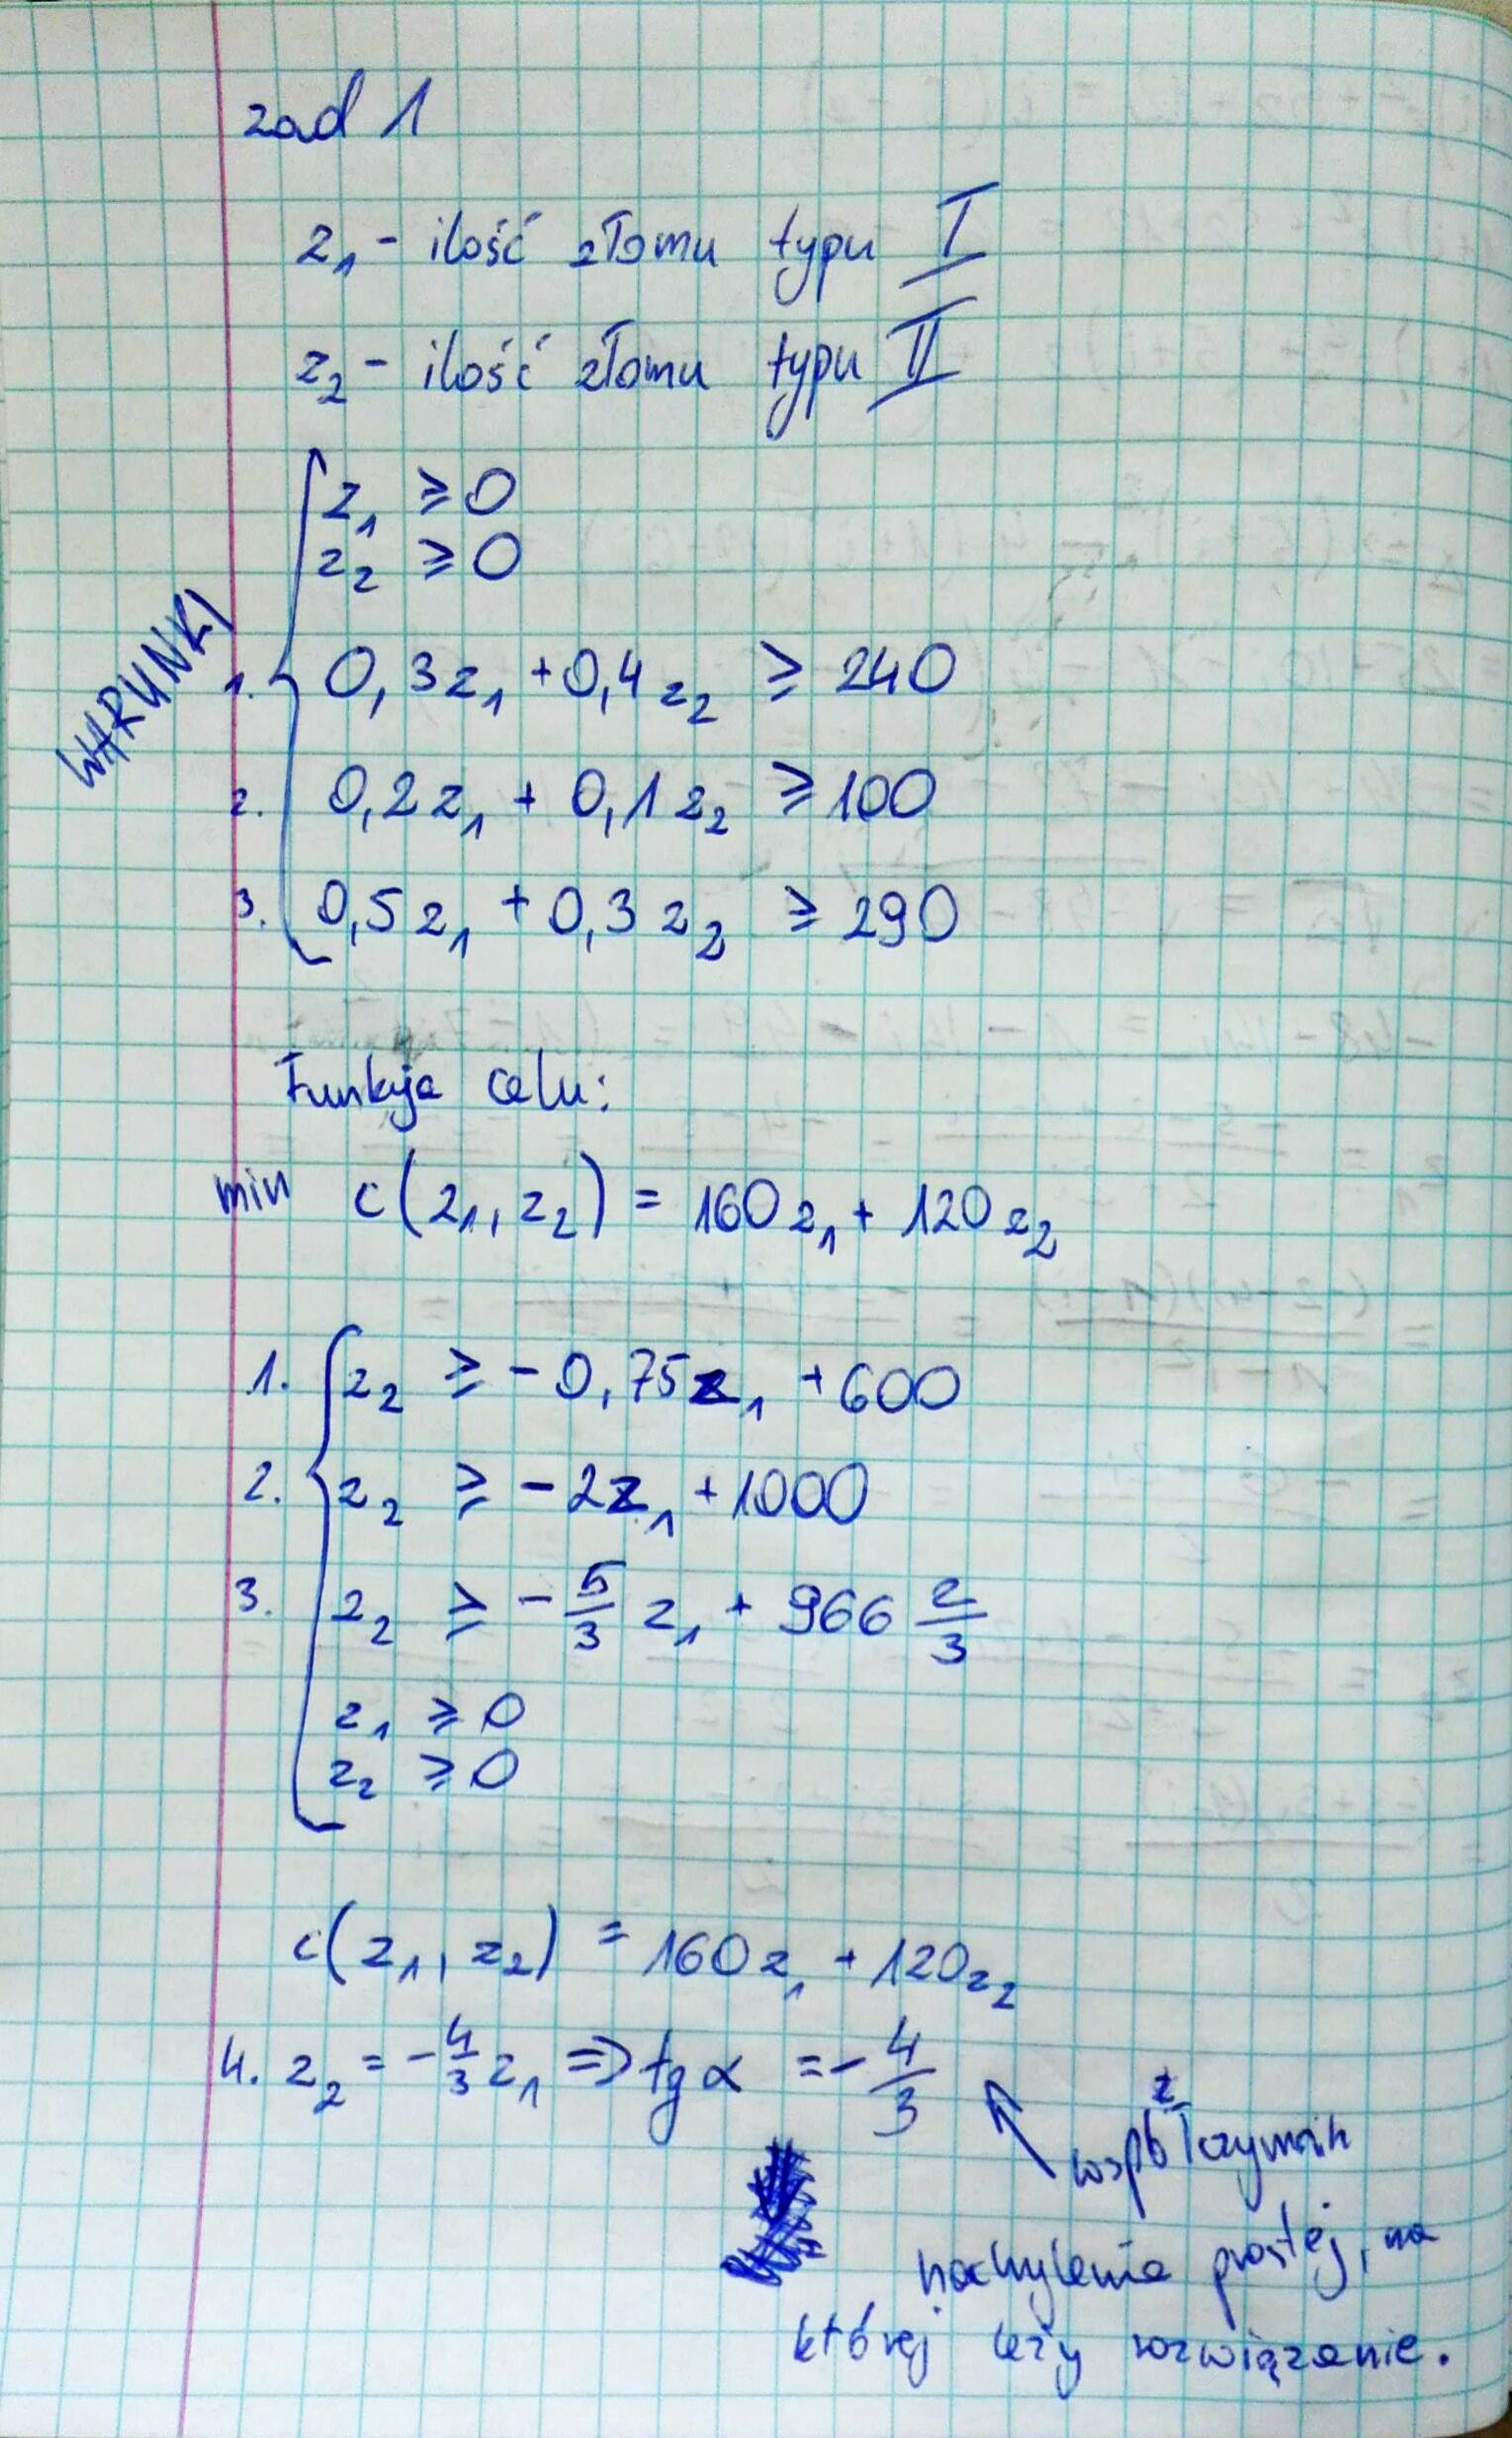 zad 1
z₁ - ilość złomu typu I
z₂ - ilość złomu typu II
WARUNKI
z₁ ≥ 0
z₂ ≥ 0
1. 0,3z₁ + 0,4z₂ ≥ 240
2. 0,2z₁ + 0,1z₂ ≥ 100
3. 0,5z₁ + 0,3z₂ ≥ 290
Funkcja celu:
min c(z₁, z₂) = 160z₁ + 120z₂
1. z₂ ≥ -0,75z₁ + 600
2. z₂ ≥ -2z₁ + 1000
3. z₂ ≥ -5/3 z₁ + 966 2/3
z₁ ≥ 0
z₂ ≥ 0
c(z₁, z₂) = 160z₁ + 120z₂
4. z₂ = -4/3 z₁ => tg α = -4/3
współczynnik
nachylenia prostej, na
której leży rozwiązanie.